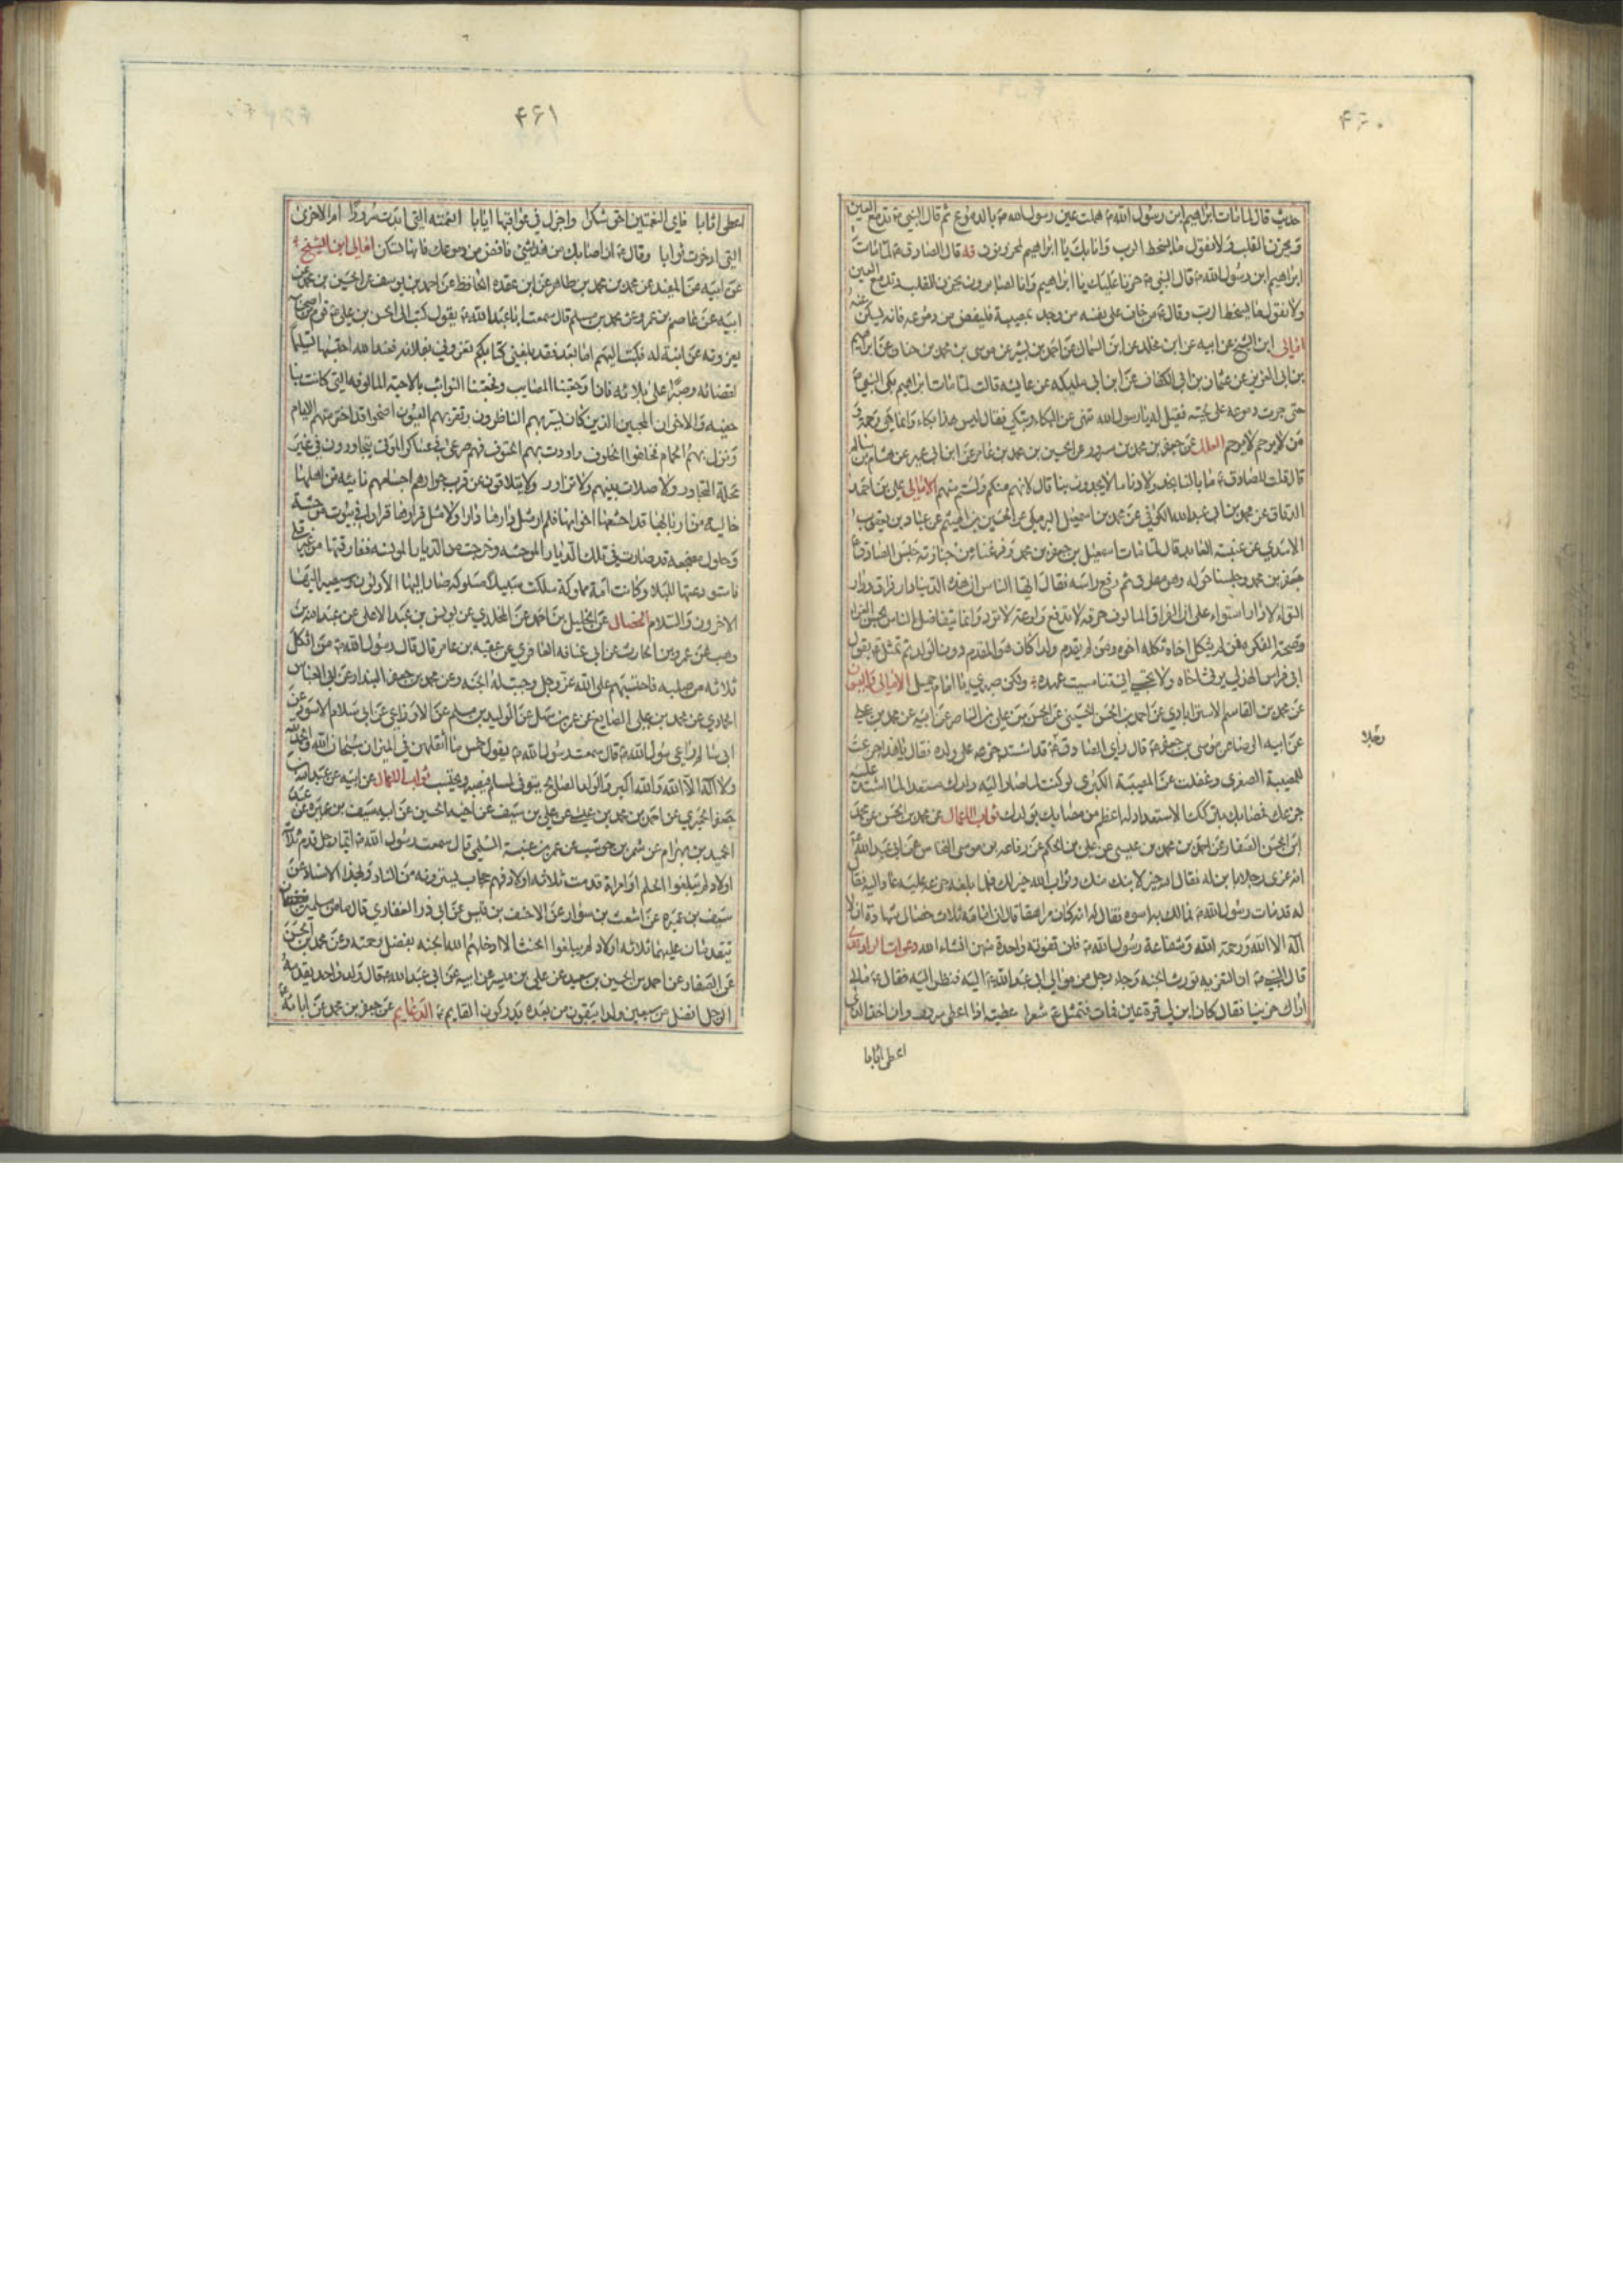 ۴۶۰
حديث قال لما مات ابراهيم ابن رسول الله ص هملت عين رسول الله ص بالدموع ثم قال النبي ص تدمع العين
ويحزن القلب ولا نقول ما يسخط الرب وانا بك يا ابراهيم لمحزونون قال الصادق ع لما مات
ابراهيم ابن رسول الله ص قال النبي ص حزنا عليك يا ابراهيم وانا لصابرون يحزن القلب وتدمع العين
ولا نقول ما يسخط الرب وقال ع من خاف على نفسه من وجد بمصيبة فليفض من دموعه فانه يسكن عنه
امالي ابن الشيخ عن ابيه عن ابن مخلد عن ابن السماك عن احمد بن بشر عن موسى بن محمد بن حنان عن ابراهيم
بن ابي العزيز عن عثمان بن ابي الكفات عن ابن ابي مليكه عن عايشه قالت لما مات ابراهيم بكى النبي ص
حتى جرت دموعه على لحيته فقيل له يا رسول الله تنهى عن البكاء وتبكي فقال ليس هذا بكاء وانما هي رحمة و
من لا يرحم لا يرحم العلل عن جعفر بن محمد بن مسرور عن الحسين بن محمد بن عامر عن ابن ابي عمير عن هشام بن سالم
قال قلت للصادق ع ما بالنا نجد باولادنا ما لا يجدون بنا قال لانهم منكم ولستم منهم الامالي علي بن احمد
الدقاق عن محمد بن ابي عبدالله الكوفي عن محمد بن اسمعيل البرمكي عن الحسين بن الهيثم عن عباد بن يعقوب
الاسدي عن عنبسة العابد قال لما مات اسمعيل بن جعفر بن محمد وفرغنا من جنازته جلس الصادق ع
جعفر بن محمد وجلسنا حوله وهو مطرق ثم رفع راسه فقال ايها الناس ان هذه الدنيا دار فراق ودار
التواء لا دار استواء على ان لفراق المالوف حرقه لا تدفع ولوعة لا ترد وانما يتفاضل الناس بحسن العزاء
وصحة الفكر فمن لم يثكل اخاه ثكله اخوه ومن لم يقدم ولدا كان هو المقدم دون الولد ثم تمثل ع بقول
ابي خراش الهذلي يرثي اخاه ولا تحسبي اني تناسيت عهده ولكن صبري يا امام جميل الامالي
عن محمد بن القاسم الاسترابادي عن احمد بن الحسن الحسيني عن الحسن بن علي بن الناصر عن ابيه عن محمد بن علي
عن ابيه الرضا عن موسى بن جعفر ع قال راى الصادق ع قد اشتد جزعه على ولده فقال يا هذا جزعت
للمصيبة الصغرى وغفلت عن المصيبة الكبرى لو كنت لما صار اليه ولدك مستعدا لما اشتد عليه
جزعك فمصابك بتركك الاستعداد له اعظم من مصابك بولدك ثواب الاعمال عن محمد بن الحسن عن محمد
ابن الحسن الصفار عن احمد بن محمد بن عيسى عن علي بن الحكم عن رفاعه بن موسى النخاس عن ابي عبدالله ع
انه عزى رجلا بابن له فقال الله خير لابنك منك وثواب الله خير لك فلما بلغه جزعه عليه عاد اليه فقال
له قد مات رسول الله ص فمالك به اسوه فقال له انه كان مراهقا قال ان امامه ثلاث خصال شهادة ان لا
اله الا الله ورحمة الله وشفاعة رسول الله ص فلن تفوته واحدة منهن انشاء الله دعوات الراوندي
قال النبي ص ان التعزيه تورث الجنه وجاء رجل من موالي ابي عبدالله ع اليه فنظر اليه فقال ع مالي
اراك حزينا فقال كان ابن لي قرة عين فمات فتمثل ع شعرا عطيته اذا اعطى سرور وان اخذ الذي
اعطى اثابا
رجلا
۴۶۱
اعطى اثابا فاي النعمتين احق شكرا واجزل في عواقبها ايابا انعمته التي ابدت سرورا ام الاخرى
التي ادخرت ثوابا وقال ع اذا اصابك من هذا شئ فافض من دموعك فانها تسكن امالي ابن الشيخ
عن ابيه عن المفيد عن محمد بن محمد بن طاهر عن ابن عقده الحافظ عن احمد بن يوسف عن الحسين بن محمد عن
ابيه عن عاصم بن عمر وعن محمد بن مسلم قال سمعت ابا عبدالله ع يقول كتب الى الحسن بن علي ع قوم من اصحابه
يعزونه عن ابنة له فكتب اليهم اما بعد فقد بلغني كتابكم تعزوني بفلانه فعند الله احتسبها تسليما
لقضائه وصبرا على بلائه فان اوجعتنا المصايب وفجعتنا النوائب بالاحبة المالوفه التي كانت بنا
حفيه والاخوان المحبين الذين كان يسر بهم الناظرون وتقر بهم العيون اضحوا قد اخترمتهم الايام
ونزل بهم الحمام فخلفوا الخلوف واودت بهم الحتوف فهم صرعى في عساكر الموتى يتجاورون في غير
محلة التجاور ولا صلات بينهم ولا تزاور ولا يتلاقون عن قرب جوارهم اجسامهم نائيه من اهلها
خاليه من اربابها قد اخشعها اخوانها فلم ار مثل دارها دارا ولا مثل قرارها قرارا في بيوت موحشة
وحلول مضجعه قد صارت في تلك الديار الموحشه وخرجت من الديار المونسه ففارقتها من غير قلى
فاستودعتها للبلاد وكانت امة مملوكة سلكت سبيلا مسلوكه صار اليها الاولون وسيصير اليها
الاخرون والسلام الخصال عن الخليل بن احمد عن المخلدي عن يونس بن عبدالاعلى عن عبدالله بن
وهب عن عمرو بن الحارث عن ابي عشانه المعافري عن عقبه بن عامر قال قال رسول الله ص من اثكل
ثلاثه من صلبه فاحتسبهم على الله عز وجل وجبت له الجنه وعن محمد بن جعفر البندار عن ابي العباس
الحمادي عن محمد بن علي الصايغ عن عمر بن سهل عن الوليد بن مسلم عن الاوزاعي عن ابي سلام الاسود عن
ابي سالم راعي رسول الله ص قال سمعت رسول الله ص يقول خمس ما اثقلهن في الميزان سبحان الله والحمد لله
ولا اله الا الله والله اكبر والولد الصالح يتوفى لمسلم فيصبر ويحتسب ثواب الاعمال عن ابيه عن عبدالله بن
جعفر الحميري عن احمد بن محمد بن عيسى عن علي بن سيف عن اخيه الحسين عن ابيه سيف بن عميره عن عبد
الحميد بن بهرام عن شهر بن حوشب عن عمر بن عنبسة السلمي قال سمعت رسول الله ص ايما رجل قدم ثلاثة
اولاد لم يبلغوا الحلم او امراة قدمت ثلاثه اولاد فهم حجاب يسترونه من النار وبهذا الاسناد عن
سيف بن عميره عن اشعث بن سوار عن الاحنف بن قيس عن ابي ذر الغفاري قال ما من مسلمين
يتقدمان عليهما ثلاثه اولاد لم يبلغوا الحنث الا ادخلهم الله الجنه بفضل رحمته وعن محمد بن الحسن
عن الصفار عن احمد بن الحسين بن سعيد عن علي بن ميسر عن ابيه عن ابي عبدالله ع قال ولد واحد يقدمه
الرجل افضل من سبعين ولدا يبقون من بعده يدركون القايم ع الدعايم عن جعفر بن محمد عن ابائه ع